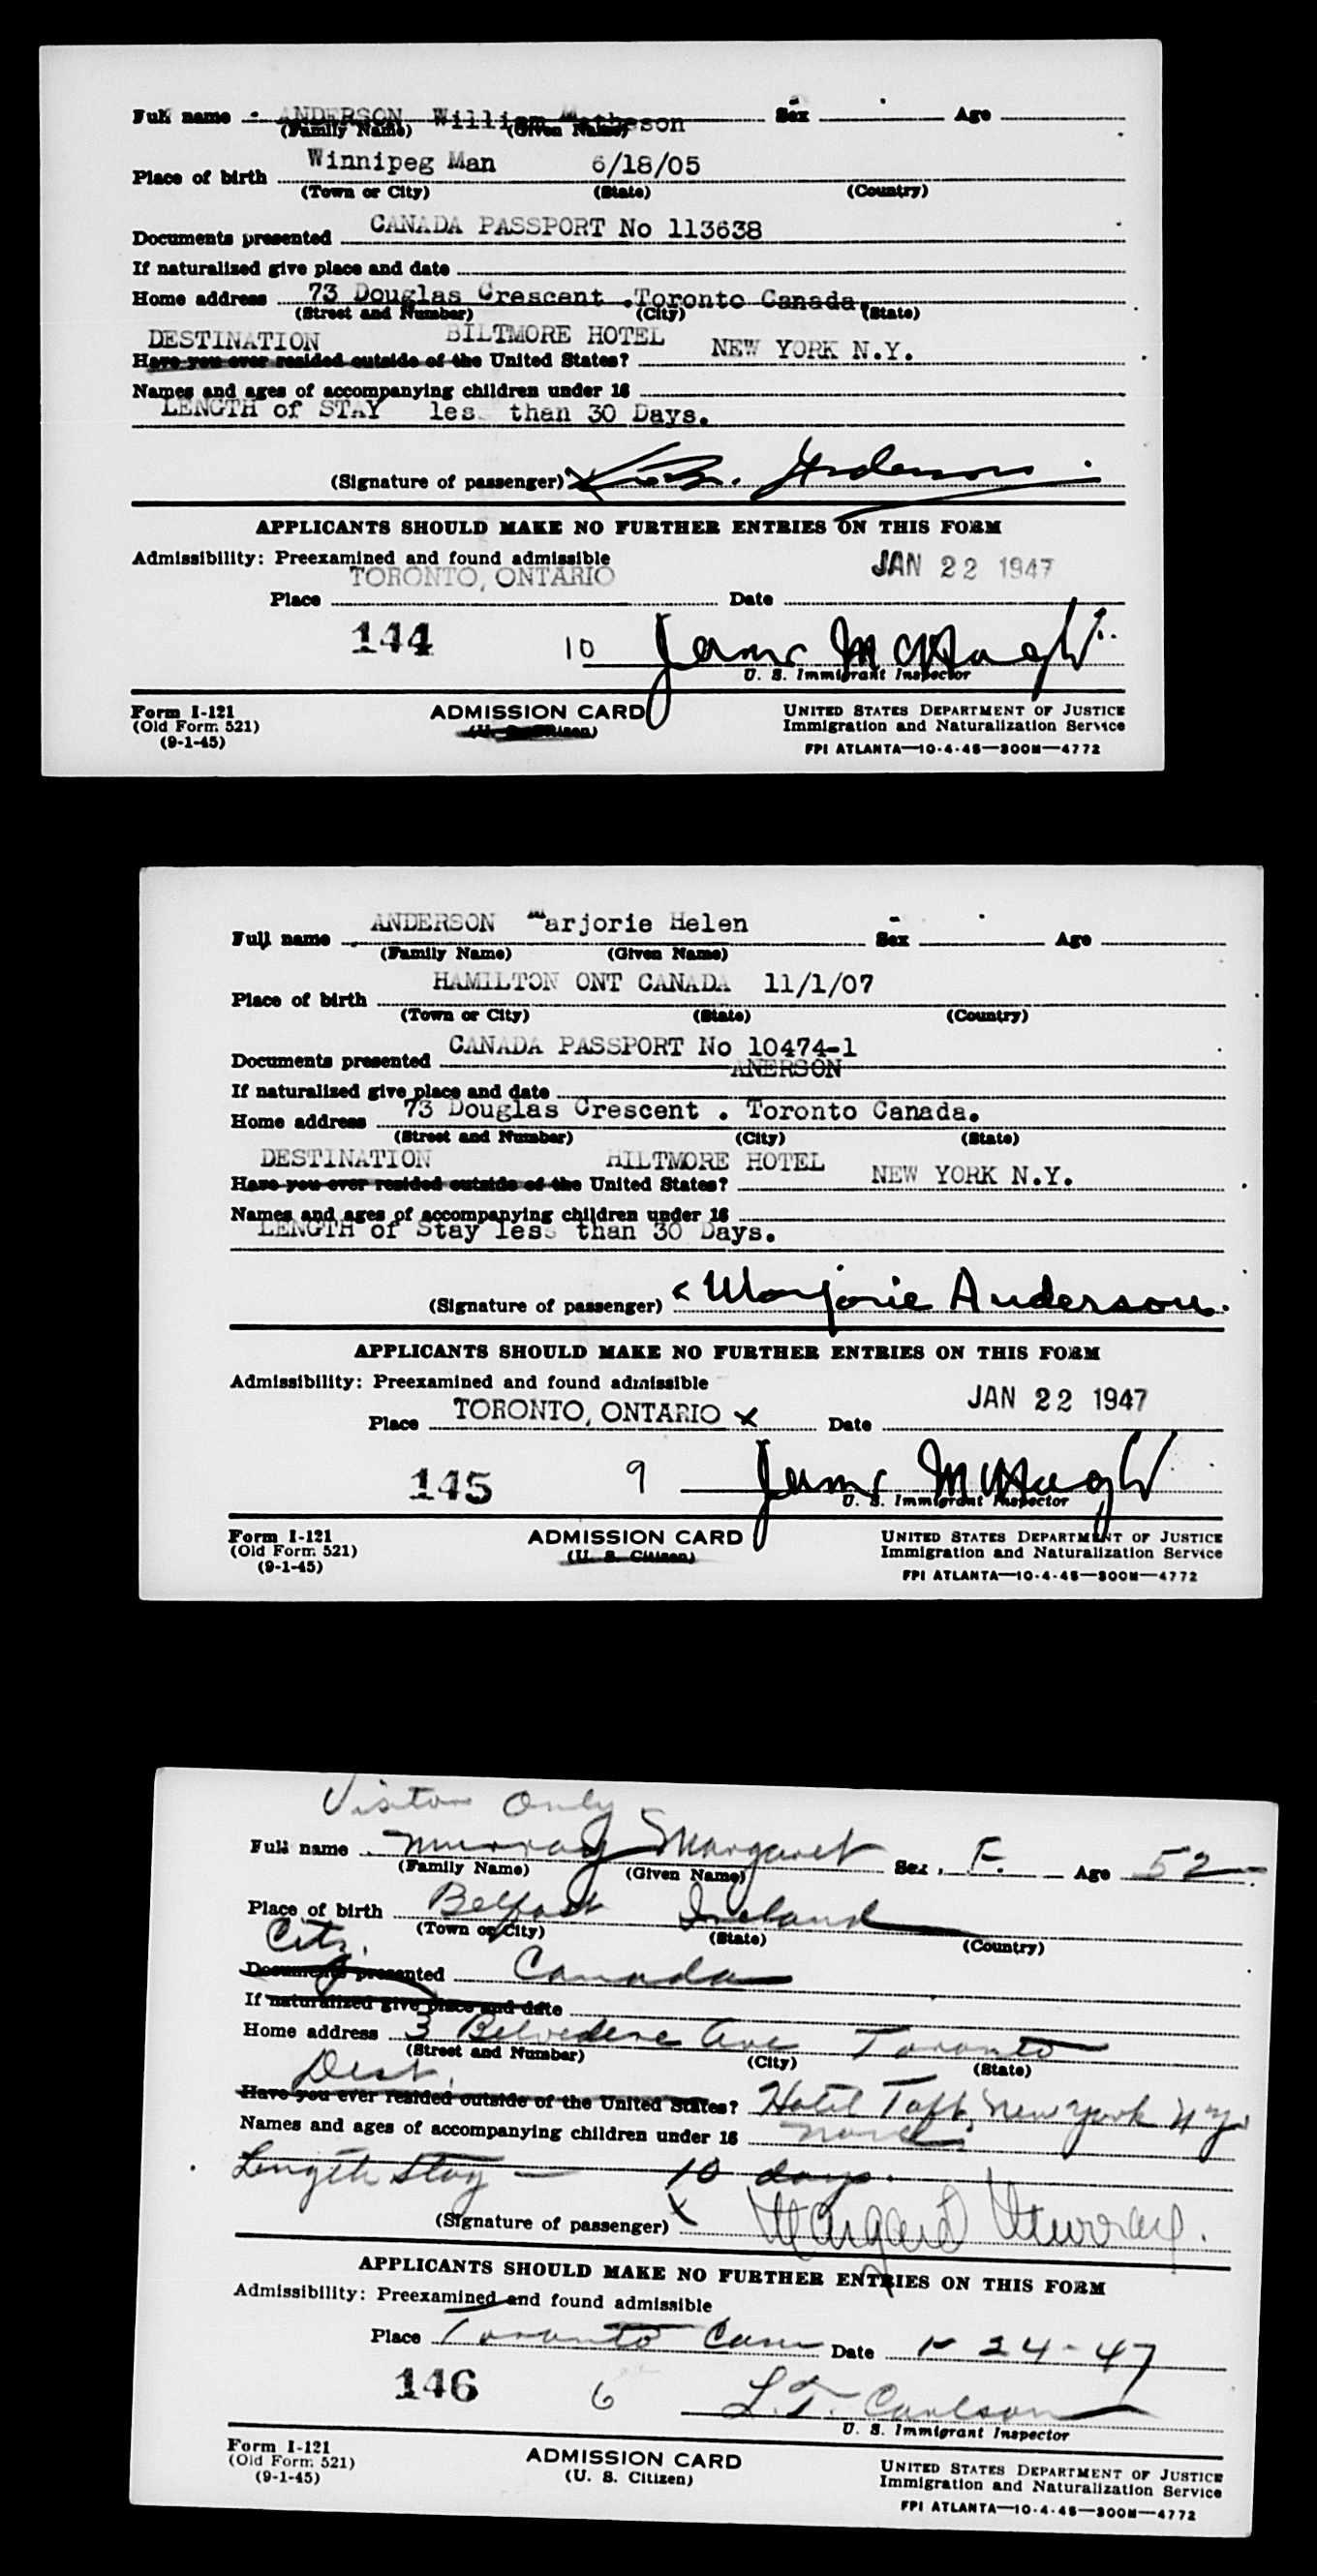 Full name ANDERSON William Matheson Sex Age
(Family Name) (Given Name)
Winnipeg Man 6/18/05
Place of birth
(Town or City) (State) (Country)
Documents presented CANADA PASSPORT No 113638
If naturalized give place and date
Home address 73 Douglas Crescent .Toronto Canada.
(Street and Number) (City) (State)
DESTINATION BILTMORE HOTEL NEW YORK N.Y.
Have you ever resided outside of the United States?
Names and ages of accompanying children under 16
LENGTH of STAY les than 30 Days.
(Signature of passenger) Anderson
APPLICANTS SHOULD MAKE NO FURTHER ENTRIES ON THIS FORM
Admissibility: Preexamined and found admissible
TORONTO, ONTARIO JAN 22 1947
Place Date
144 10 James McHaugh
U. S. Immigrant Inspector
Form I-121 ADMISSION CARD UNITED STATES DEPARTMENT OF JUSTICE
(Old Form 521) (U. S. Citizen) Immigration and Naturalization Service
(9-1-45) FPI ATLANTA—10-4-45—300M—4772
Full name ANDERSON Marjorie Helen Sex Age
(Family Name) (Given Name)
HAMILTON ONT CANADA 11/1/07
Place of birth
(Town or City) (State) (Country)
Documents presented CANADA PASSPORT No 10474-1
ANERSON
If naturalized give place and date
Home address 73 Douglas Crescent . Toronto Canada.
(Street and Number) (City) (State)
DESTINATION HILTMORE HOTEL NEW YORK N.Y.
Have you ever resided outside of the United States?
Names and ages of accompanying children under 16
LENGTH of Stay less than 30 Days.
(Signature of passenger) x Marjorie Anderson.
APPLICANTS SHOULD MAKE NO FURTHER ENTRIES ON THIS FORM
Admissibility: Preexamined and found admissible
JAN 22 1947
Place TORONTO, ONTARIO x Date
145 9 James McHaugh
U. S. Immigrant Inspector
Form I-121 ADMISSION CARD UNITED STATES DEPARTMENT OF JUSTICE
(Old Form 521) (U. S. Citizen) Immigration and Naturalization Service
(9-1-45) FPI ATLANTA—10-4-45—300M—4772
Visitor Only
Full name Murray Margaret Sex F. Age 52
(Family Name) (Given Name)
Place of birth Belfast Ireland
(Town or City) (State) (Country)
Citz.
Documents presented Canada
If naturalized give place and date
Home address 3 Belvedere Ave Toronto
(Street and Number) (City) (State)
Dest.
Have you ever resided outside of the United States? Hotel Taft, New York N.Y.
Names and ages of accompanying children under 16 none
Length Stay — 10 days.
(Signature of passenger) x Margaret Murray.
APPLICANTS SHOULD MAKE NO FURTHER ENTRIES ON THIS FORM
Admissibility: Preexamined and found admissible
Place Toronto Can Date 1-24-47
146 6 L.T. Carlson
U. S. Immigrant Inspector
Form I-121 ADMISSION CARD UNITED STATES DEPARTMENT OF JUSTICE
(Old Form 521) (U. S. Citizen) Immigration and Naturalization Service
(9-1-45) FPI ATLANTA—10-4-45—300M—4772